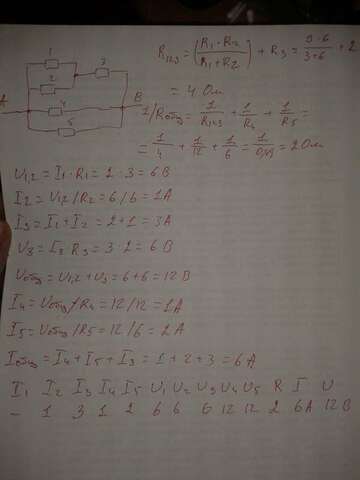 1
2
3
A
4
B
5
R₁₂₃ = (R₁·R₂ / R₁+R₂) + R₃ = 3·6 / 3+6 + 2
= 4 Ом
1/Rобщ = 1/R₁₂₃ + 1/R₄ + 1/R₅ =
= 1/4 + 1/12 + 1/6 = 1/0,49 = 2 Ом
U₁,₂ = I₁ · R₁ = 2 · 3 = 6 В
I₂ = U₁,₂ / R₂ = 6/6 = 1 А
I₃ = I₁ + I₂ = 2+1 = 3А
U₃ = I₃ R₃ = 3 · 2 = 6 В
Uобщ = U₁,₂ + U₃ = 6+6 = 12 В
I₄ = Uобщ/R₄ = 12/12 = 1 А
I₅ = Uобщ/R₅ = 12/6 = 2 А
Iобщ = I₄ + I₅ + I₃ = 1 + 2 + 3 = 6 А
I₁ I₂ I₃ I₄ I₅ U₁ U₂ U₃ U₄ U₅ R I U
– 1 3 1 2 6 6 6 12 12 2 6А 12 В